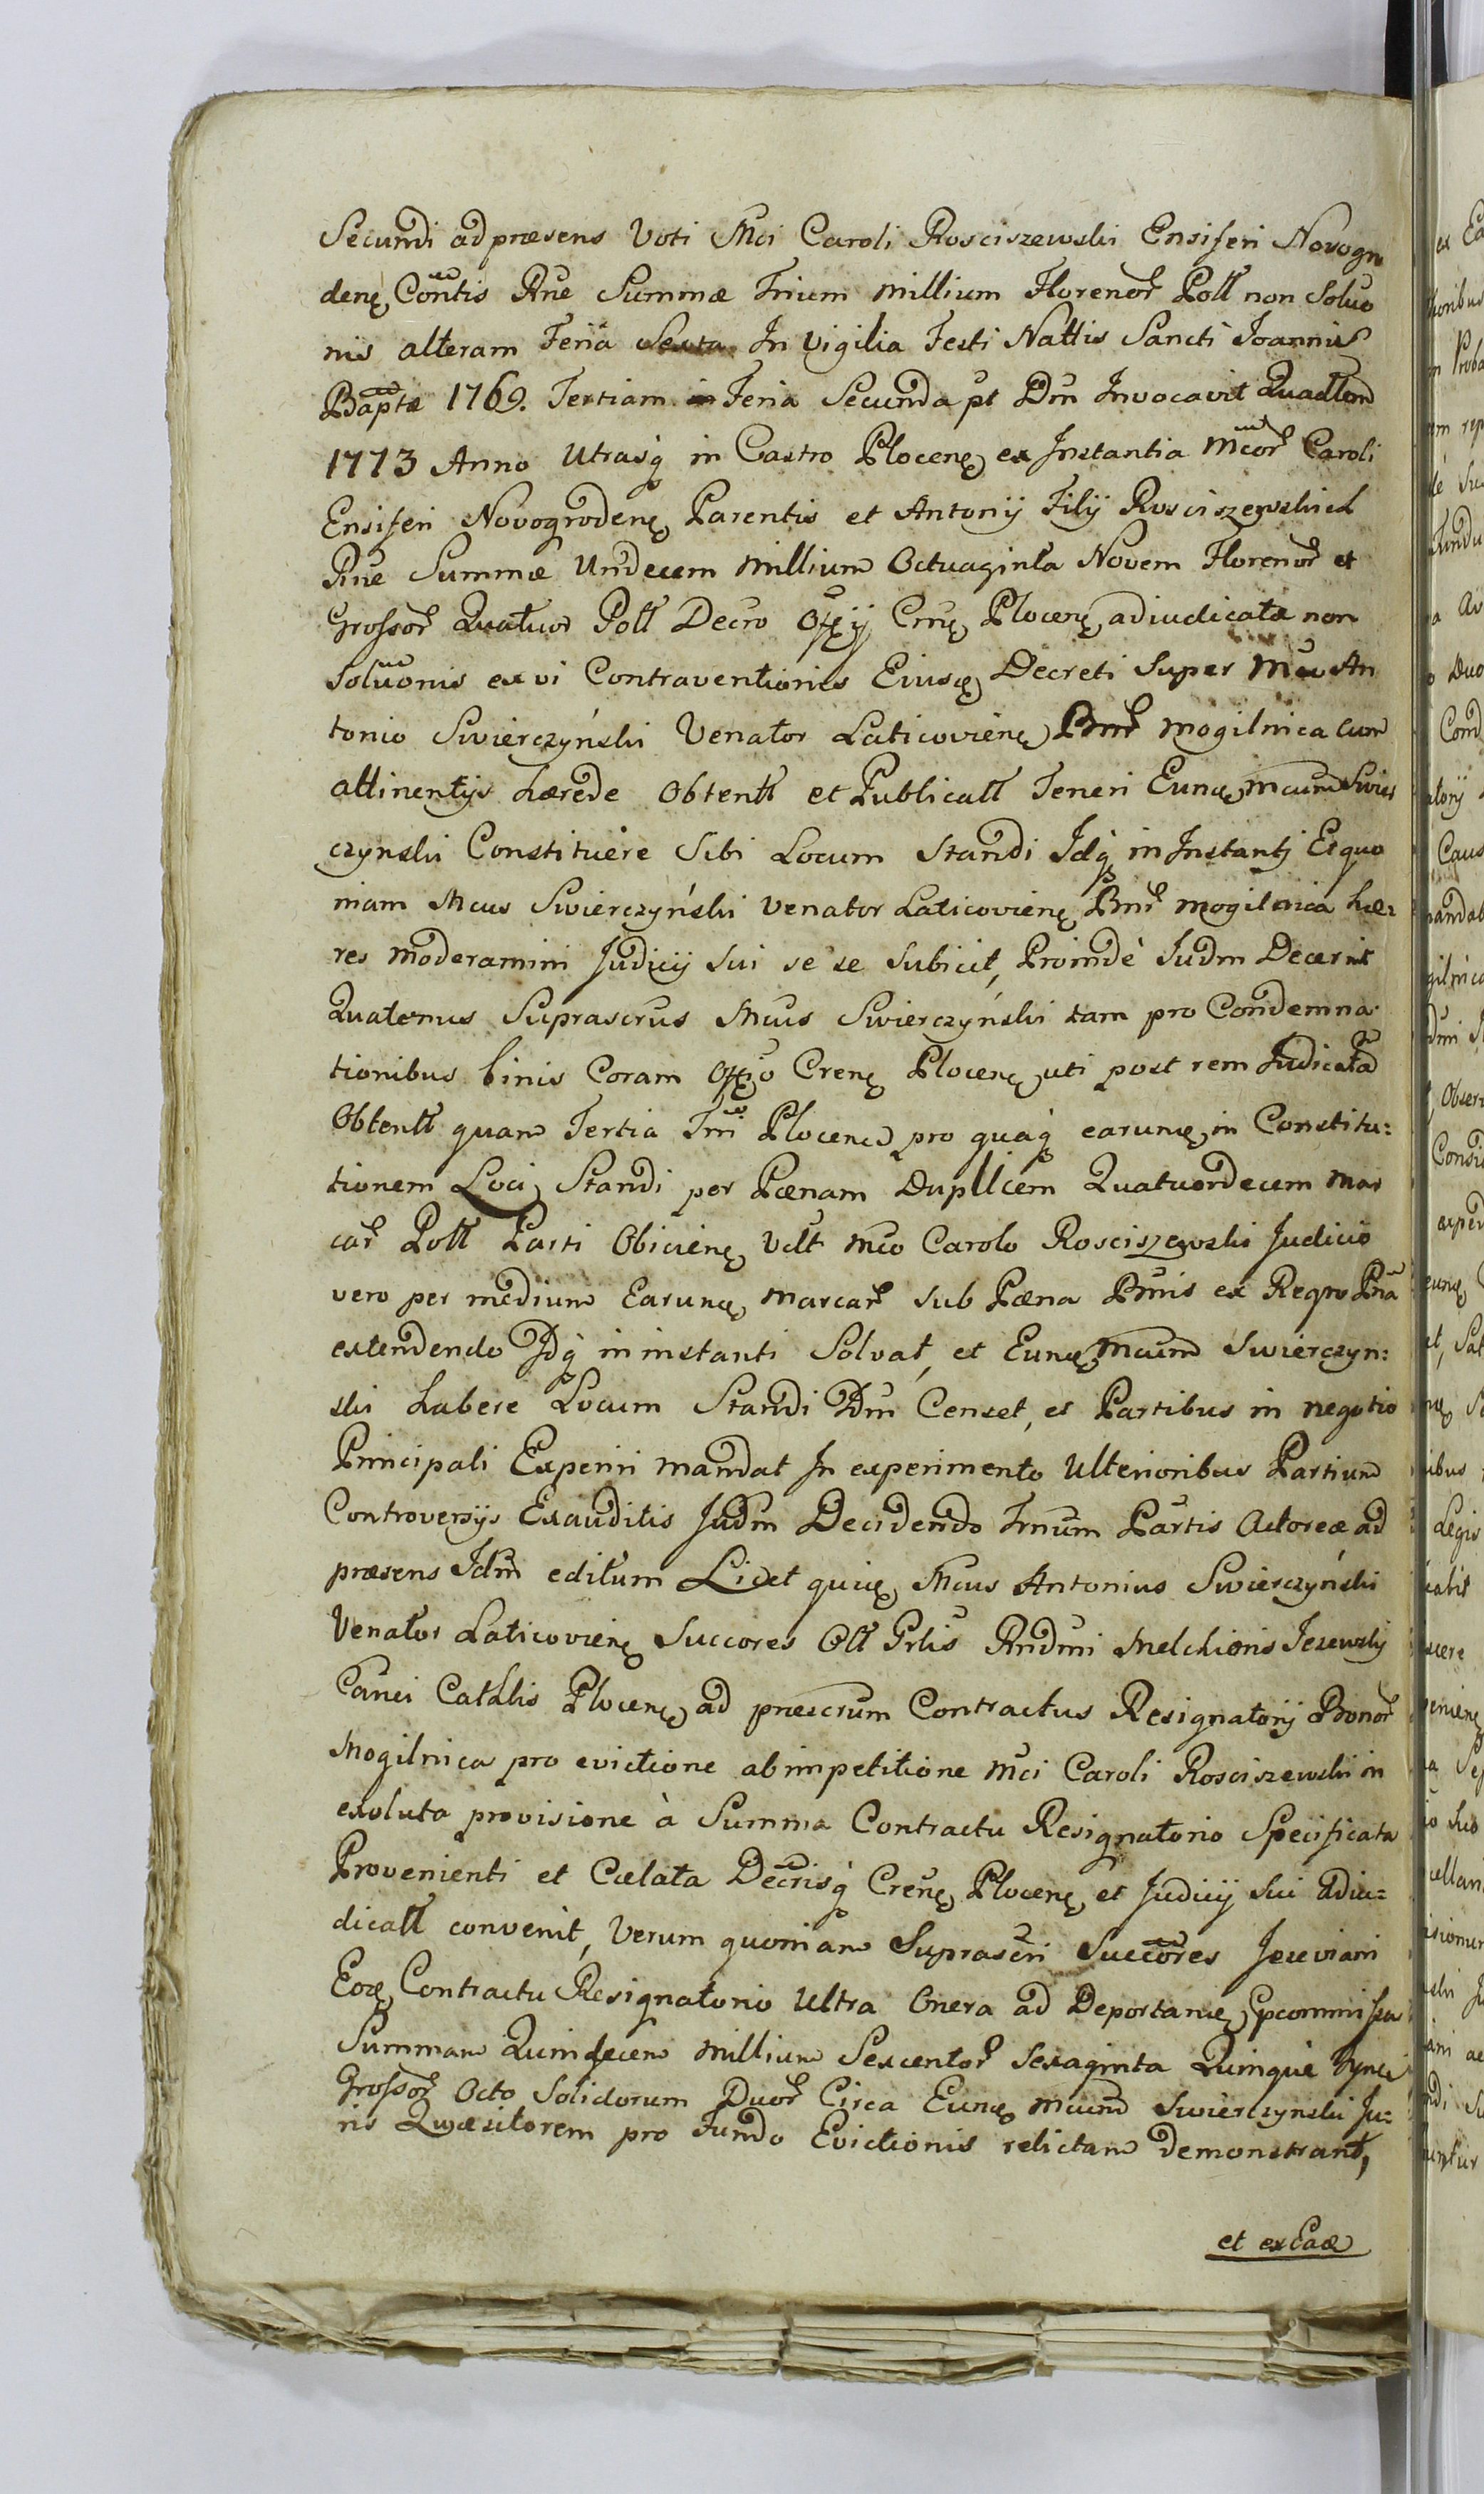 Secundi ad præsens Voti Mci Caroli Rosciszewski Ensiferi Novogro
denę Conntis Rne Summæ Trium Millium Florenor Poll non Soluo
nis alteram Feria Sexta In Vigilia Festi Nattis Sancti Joannis
Baptæ 1769. Tertiam in Feria Secunda pt Dm Invocavit Quadlem
1773 Anno Utrasq in Castro Plocenę ex Instantia Mcor Caroli
Ensiferi Novogrodenę Parentis et Antonij Filij Rosciszewskich
Rne Summæ Undecem Millium Octuaginta Novem Florenor et
Grossor Quatuor Poll Decro Offij Crnę Plocenę adiudicatæ non
Soluonis ex vi Contraventionis Eiusę Decreti Super Mco An
tonio Swierczyński Venator Laticovienę Bnor Mogilnica cum
attinentijs hærede Obtentt et Publicatt Teneri Eunę Mcum Swier
czynski Constituere Sibi Locum Standi Idq in Instanti Et quo
niam Mcus Swierczyński Venator Laticovienę Bnr Mogilnica hæ:
res moderamini Judicij Sui se se Subicit, Proinde Judm Decernit
Quatenus Suprascrus Mcus Swierczyński tam pro Condemna
tionibus binis Coram Offio Crenę Plocenę uti post rem Judicatã
Obtentt quam Tertia Tmi Plocenę pro quaq earunę in Constitu:
tionem Loci Standi per Pœnam Duplicem Quatuordecem Mar
car Poll Parti Obicienę Vdlt Mco Carolo Rosciszewski Judicio
vero per medium Earunę Marcar Sub Pæna Bmis ex Regno Pna
extendendo Idq in instanti Solvat, et Eunę Mcum Swierczyn:
ski habere Locum Standi Dm Censet, et Partibus in negotio
Principali Experiri mandat In experimento Ulterioribus Partium
Controversijs Exauditis Judm Decidendo Trnum Partis Actoreæ ad
præsens Idm editum Licet quię Mcus Antonius Swierczyński
Venator Laticovienę Succores Oll Prlis Rndmi Melchioris Jezewsky
Canci Cathlis Plocenę ad præscrum Contractus Resignatorij Bonor
Mogilnica pro evictione ab impetitione Mci Caroli Rosciszewski in
exoluta provisione à Summa Contractu Resignatorio Specificata
Provenienti et Cælata Decrisq Crenę Plocenę et Judicij Sui adiu:
dicatt convenit, Verum quoniam Suprascri Succores Jezeviani
Eoę Contractu Resignatorio Ultra Onera ad Deportanę commissa
Summam Quindecem Millium Sexcentor Sexaginta Quinque
Grossor Octo Solidorum Duor Circa Eunę Mcum Swierczynski Ju:
ris Quæsitorem pro Fundo Evictionis relictam demonstrant,
et ex Eaę